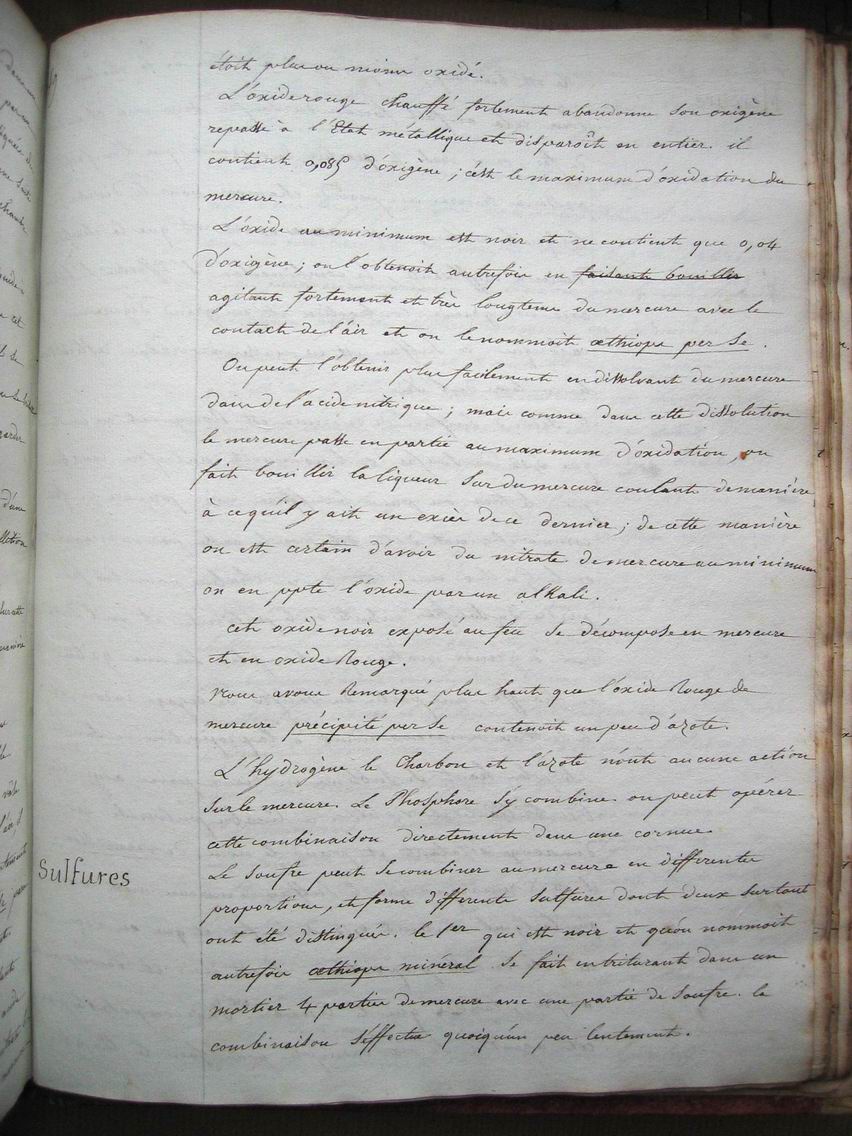 étoit plus ou moins oxidé.
L'oxide rouge chauffé fortement abandonne son oxigène
repasse à l'Etat métallique et disparoît en entier. il
contient 0,085 d'oxigène ; c'est le maximum d'oxidation du
mercure.
L'oxide au minimum est noir et ne contient que 0,04
d'oxigène ; on l'obtenoit autrefois en faisant bouillir
agitant fortement et très longtems du mercure avec le
contact de l'air et on le nommoit æthiops per se.
On peut l'obtenir plus facilement en dissolvant du mercure
dans de l'acide nitrique ; mais comme dans cette dissolution
le mercure passe en partie au maximum d'oxidation, on
fait bouillir la liqueur sur du mercure coulant de manière
à ce qu'il y ait un excès de ce dernier ; de cette manière
on est certain d'avoir du nitrate de mercure au minimum
on en ppte l'oxide par un alkali.
cet oxide noir exposé au feu se décompose en mercure
et en oxide Rouge.
Nous avons Remarqué plus haut que l'oxide Rouge de
mercure précipité per se contenoit un peu d'azote.
L'hydrogène le Charbon et l'azote n'ont aucune action
sur le mercure. Le Phosphore s'y combine on peut opérer
cette combinaison directement dans une cornue.
Sulfures
Le soufre peut se combiner au mercure en différentes
proportions, et forme différents sulfures dont deux surtout
ont été distingués. le 1er qui est noir et qu'on nommoit
autrefois æthiops minéral se fait en triturant dans un
mortier 4 parties de mercure avec une partie de soufre. la
combinaison s'effectue quoiqu'un peu lentement.